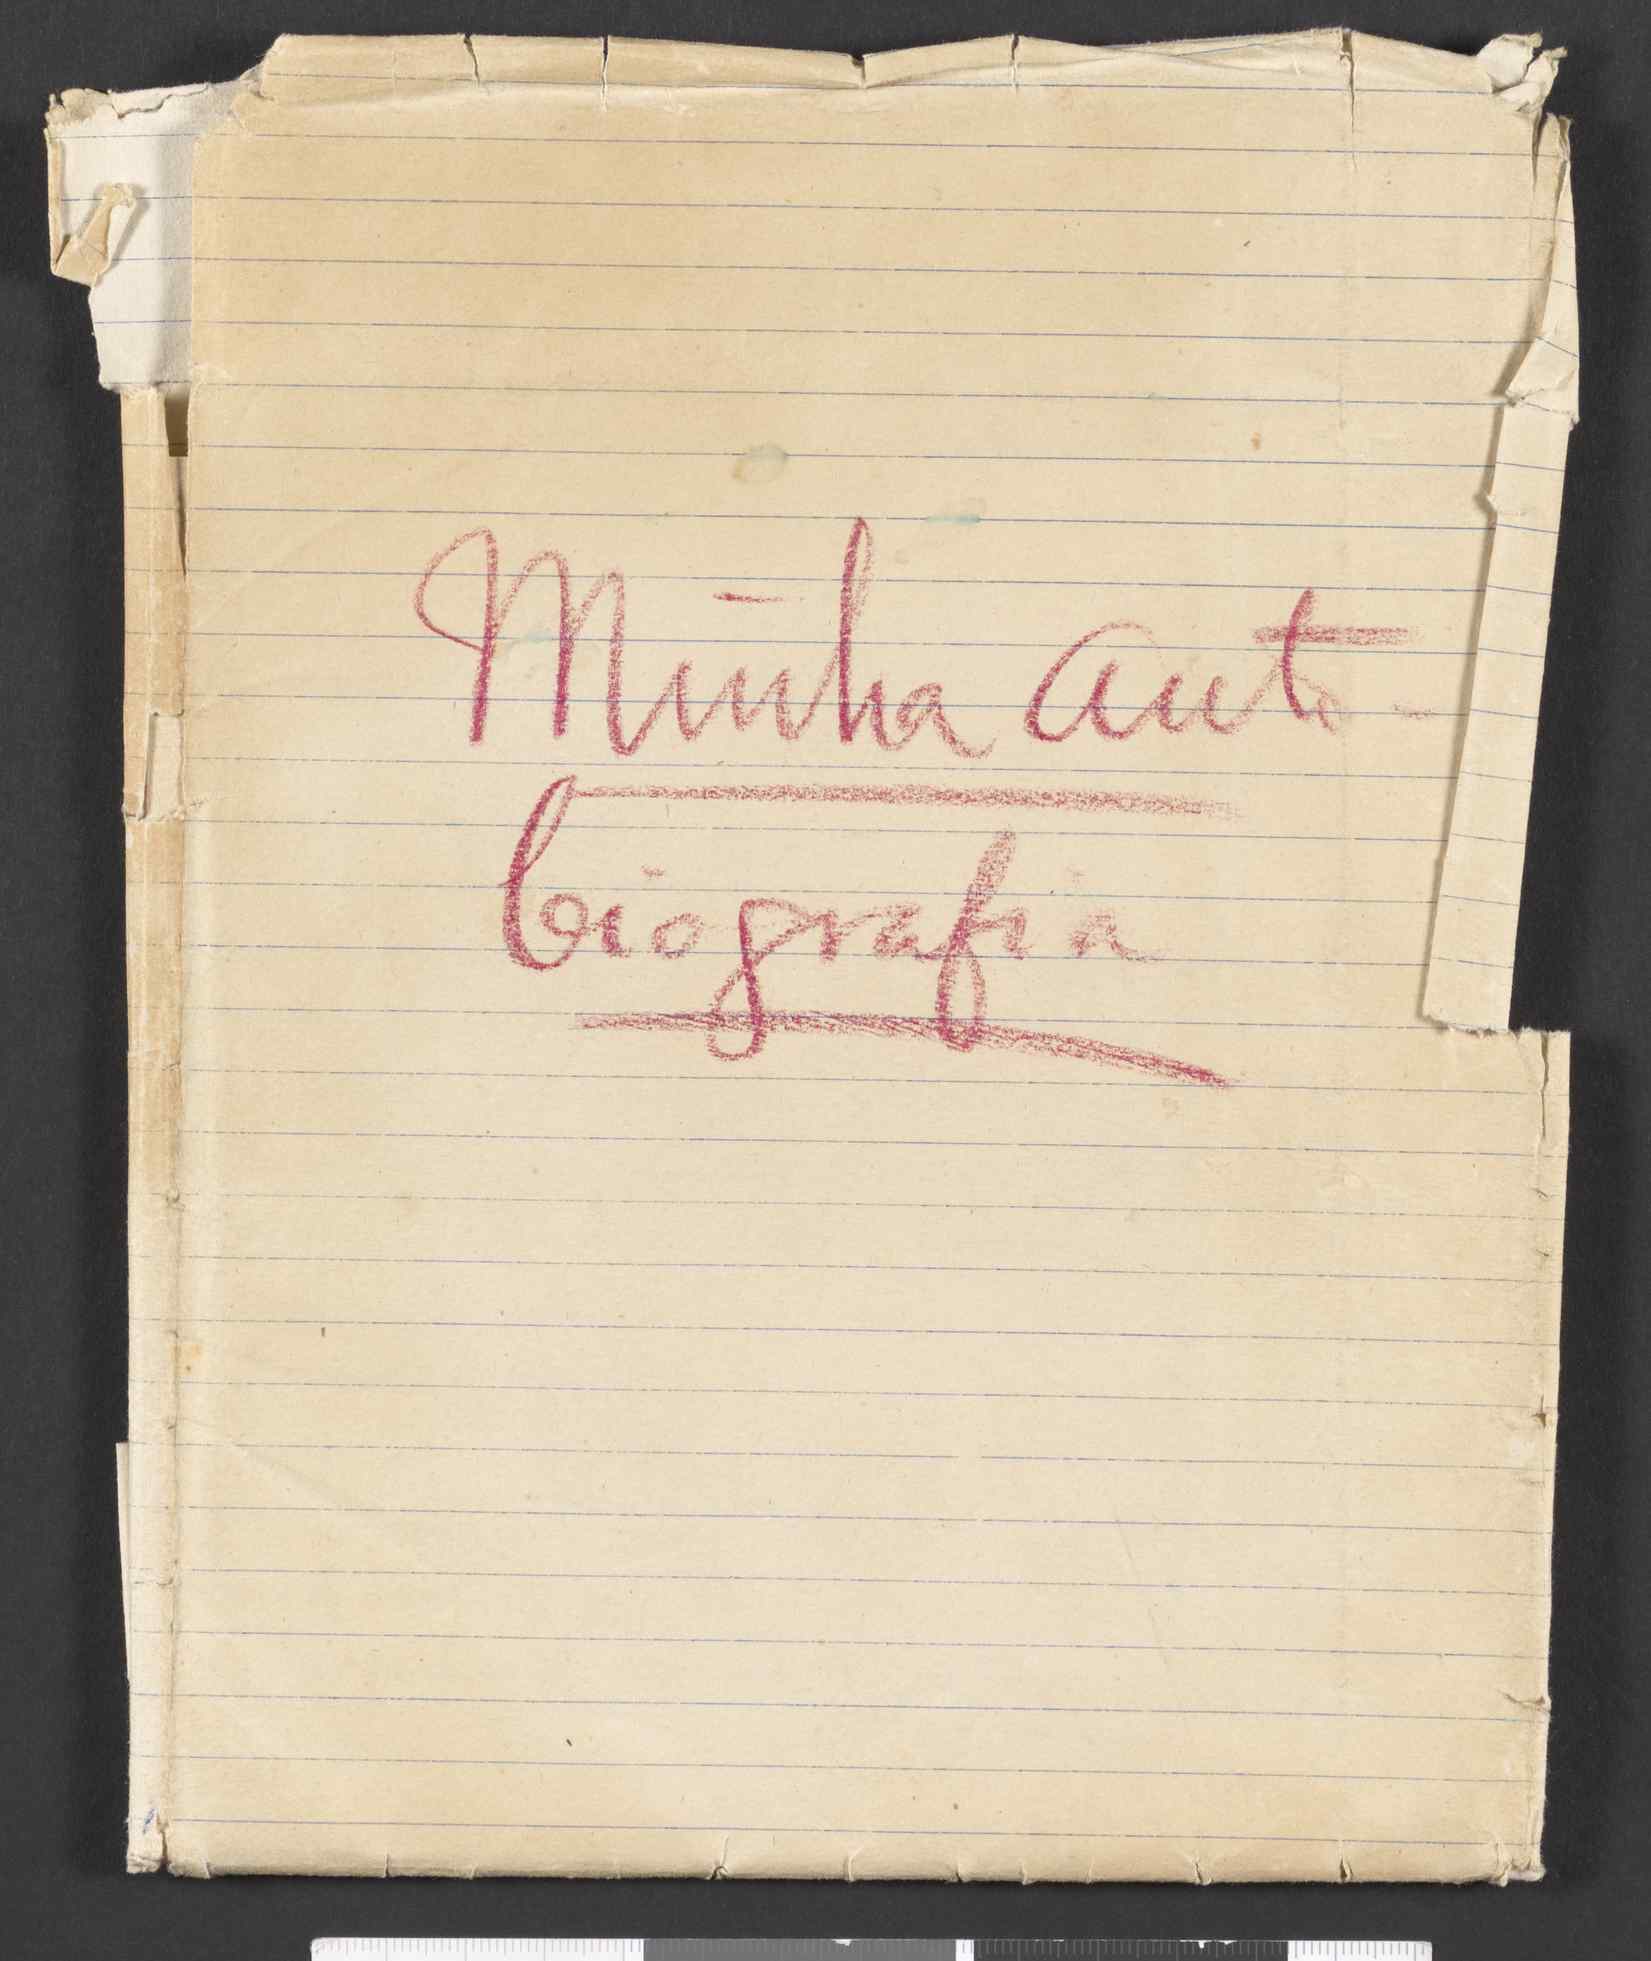 Minha auto-
biografia